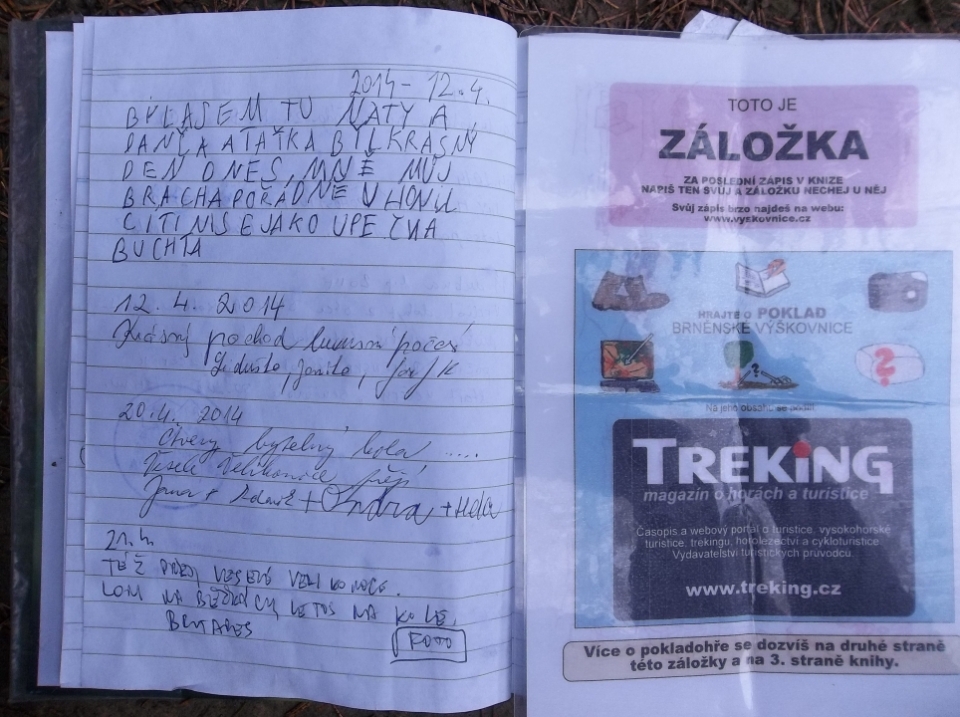 2014 - 12.4.
BÝLA SEM TU NATY A
DANČA A TAŤKA BYL KRÁSNÝ
DEN DNES, MNĚ MŮJ
BRACHA POŘÁDNĚ UHONIL
CÍTIM SE JAKO UPEČNÁ
BUCHTA
12. 4. 2014
Krásný pochod luxusní počasí
Liduška, Janita,
20.4. 2014
Čtvery kola .....
Veselé Velikonoce přejí
Jana + + Ondra + Hela
21.4.
TÉŽ PŘEJI VESELÉ VELIKONOCE.
LONI NA BĚŽKÁCH, LETOS NA KOLE.
FOTO
TOTO JE
ZÁLOŽKA
ZA POSLEDNÍ ZÁPIS V KNIZE
NAPIŠ TEN SVŮJ A ZÁLOŽKU NECHEJ U NĚJ
Svůj zápis brzo najdeš na webu:
www.vyskovnice.cz
HRAJTE O POKLAD
BRNĚNSKÉ VÝŠKOVNICE
?
?
Na jeho obsahu se podílí
TREKING
magazín o horách a turistice
Časopis a webový portál o turistice, vysokohorské
turistice, trekingu, horolezectví a cykloturistice.
Vydavatelství turistických průvodců.
www.treking.cz
Více o pokladohře se dozvíš na druhé straně
této záložky a na 3. straně knihy.